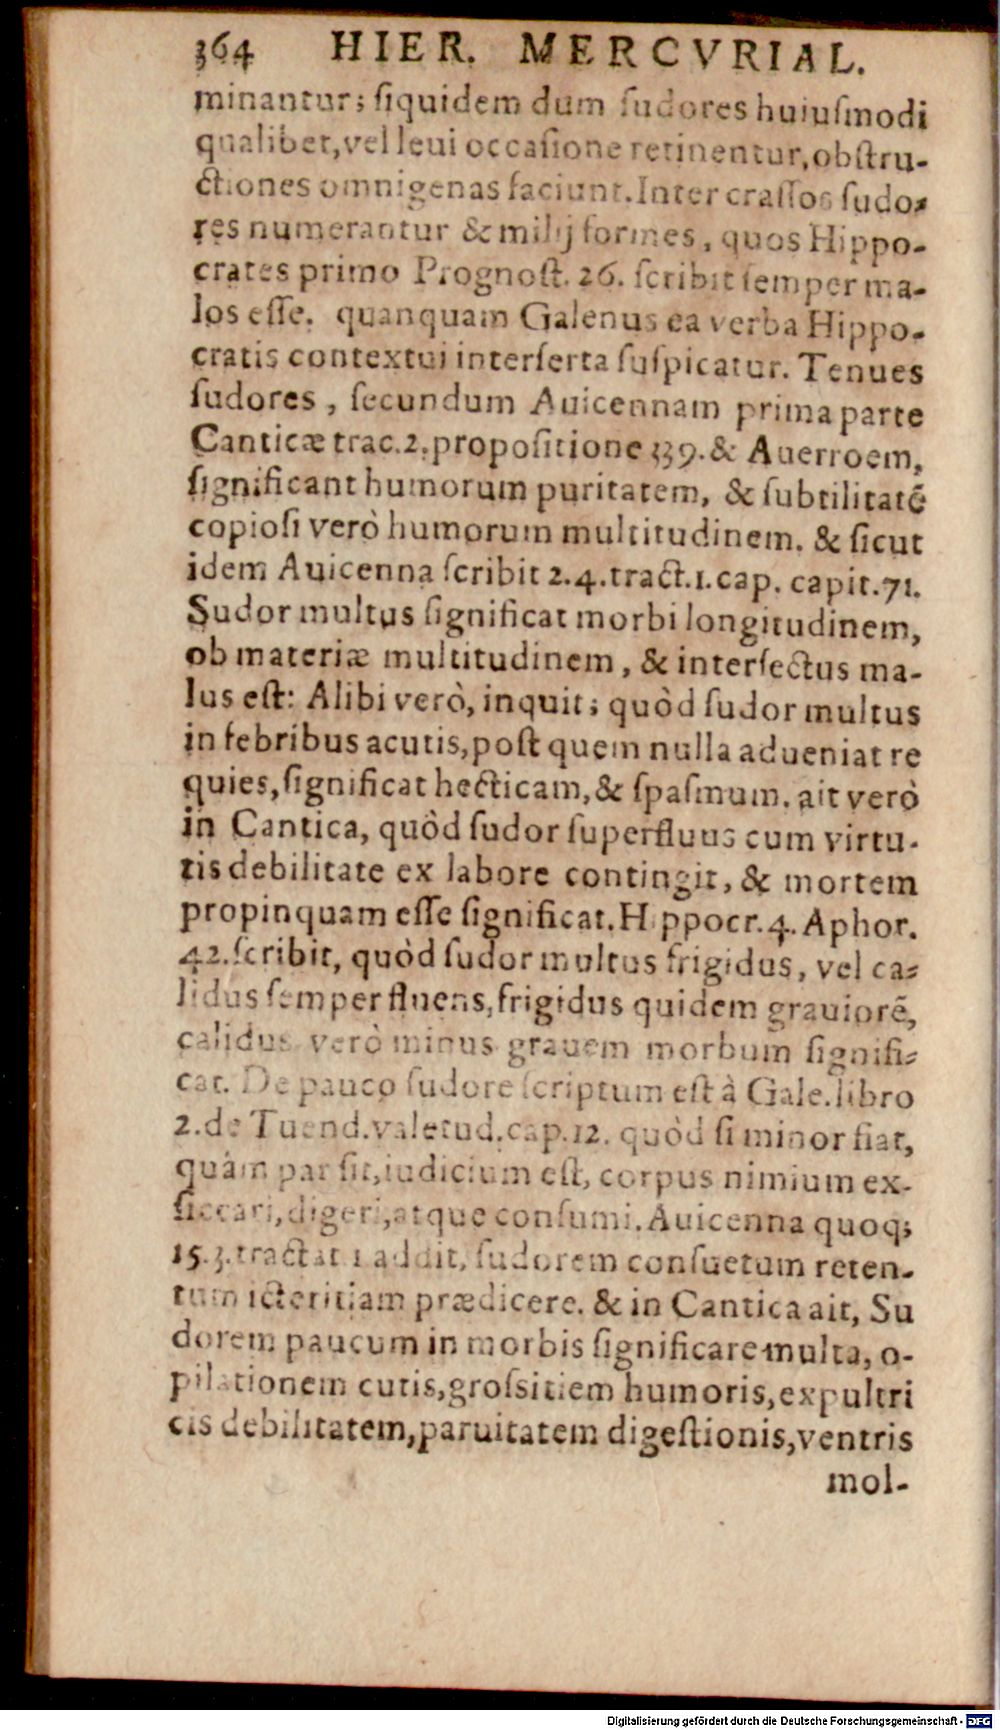 364 HIER. MERCVRIAL.
minantur; ſiquidem dum ſudores huiuſmodi
qualibet, vel leui occaſione retinentur, obſtru-
ctiones omnigenas faciunt. Inter craſſos ſudo-
res numerantur & milij formes, quos Hippo-
crates primo Prognoſt. 26. ſcribit ſemper ma-
los eſſe. quanquam Galenus ea verba Hippo-
cratis contextui interſerta ſuſpicatur. Tenues
ſudores, ſecundum Auicennam prima parte
Canticæ trac. 2. propoſitione 339. & Auerroem,
ſignificant humorum puritatem, & ſubtilitatẽ
copioſi verò humorum multitudinem. & ſicut
idem Auicenna ſcribit 2. 4. tract. 1. cap. capit. 71.
Sudor multus ſignificat morbi longitudinem,
ob materiæ multitudinem, & interſectus ma-
lus eſt: Alibi verò, inquit; quòd ſudor multus
in febribus acutis, poſt quem nulla adueniat re
quies, ſignificat hecticam, & ſpaſmum. ait verò
in Cantica, quòd ſudor ſuperfluus cum virtu-
tis debilitate ex labore contingit, & mortem
propinquam eſſe ſignificat. Hippocr. 4. Aphor.
42. ſcribit, quòd ſudor multus frigidus, vel ca-
lidus ſemper fluens, frigidus quidem grauiorẽ,
calidus verò minus grauem morbum ſignifi-
cat. De pauco ſudore ſcriptum eſt à Gale. libro
2. de Tuend. valetud. cap. 12. quòd ſi minor fiat,
quàm par ſit, iudicium eſt, corpus nimium ex-
ſiccari, digeri, atque conſumi. Auicenna quoq;
15. 3. tractat 1 addit, ſudorem conſuetum reten-
tum icteritiam prædicere. & in Cantica ait, Su
dorem paucum in morbis ſignificare multa, o-
pilationem cutis, groſsitiem humoris, expultri
cis debilitatem, paruitatem digeſtionis, ventris
mol-
Digitalisierung gefördert durch die Deutsche Forschungsgemeinschaft - DFG